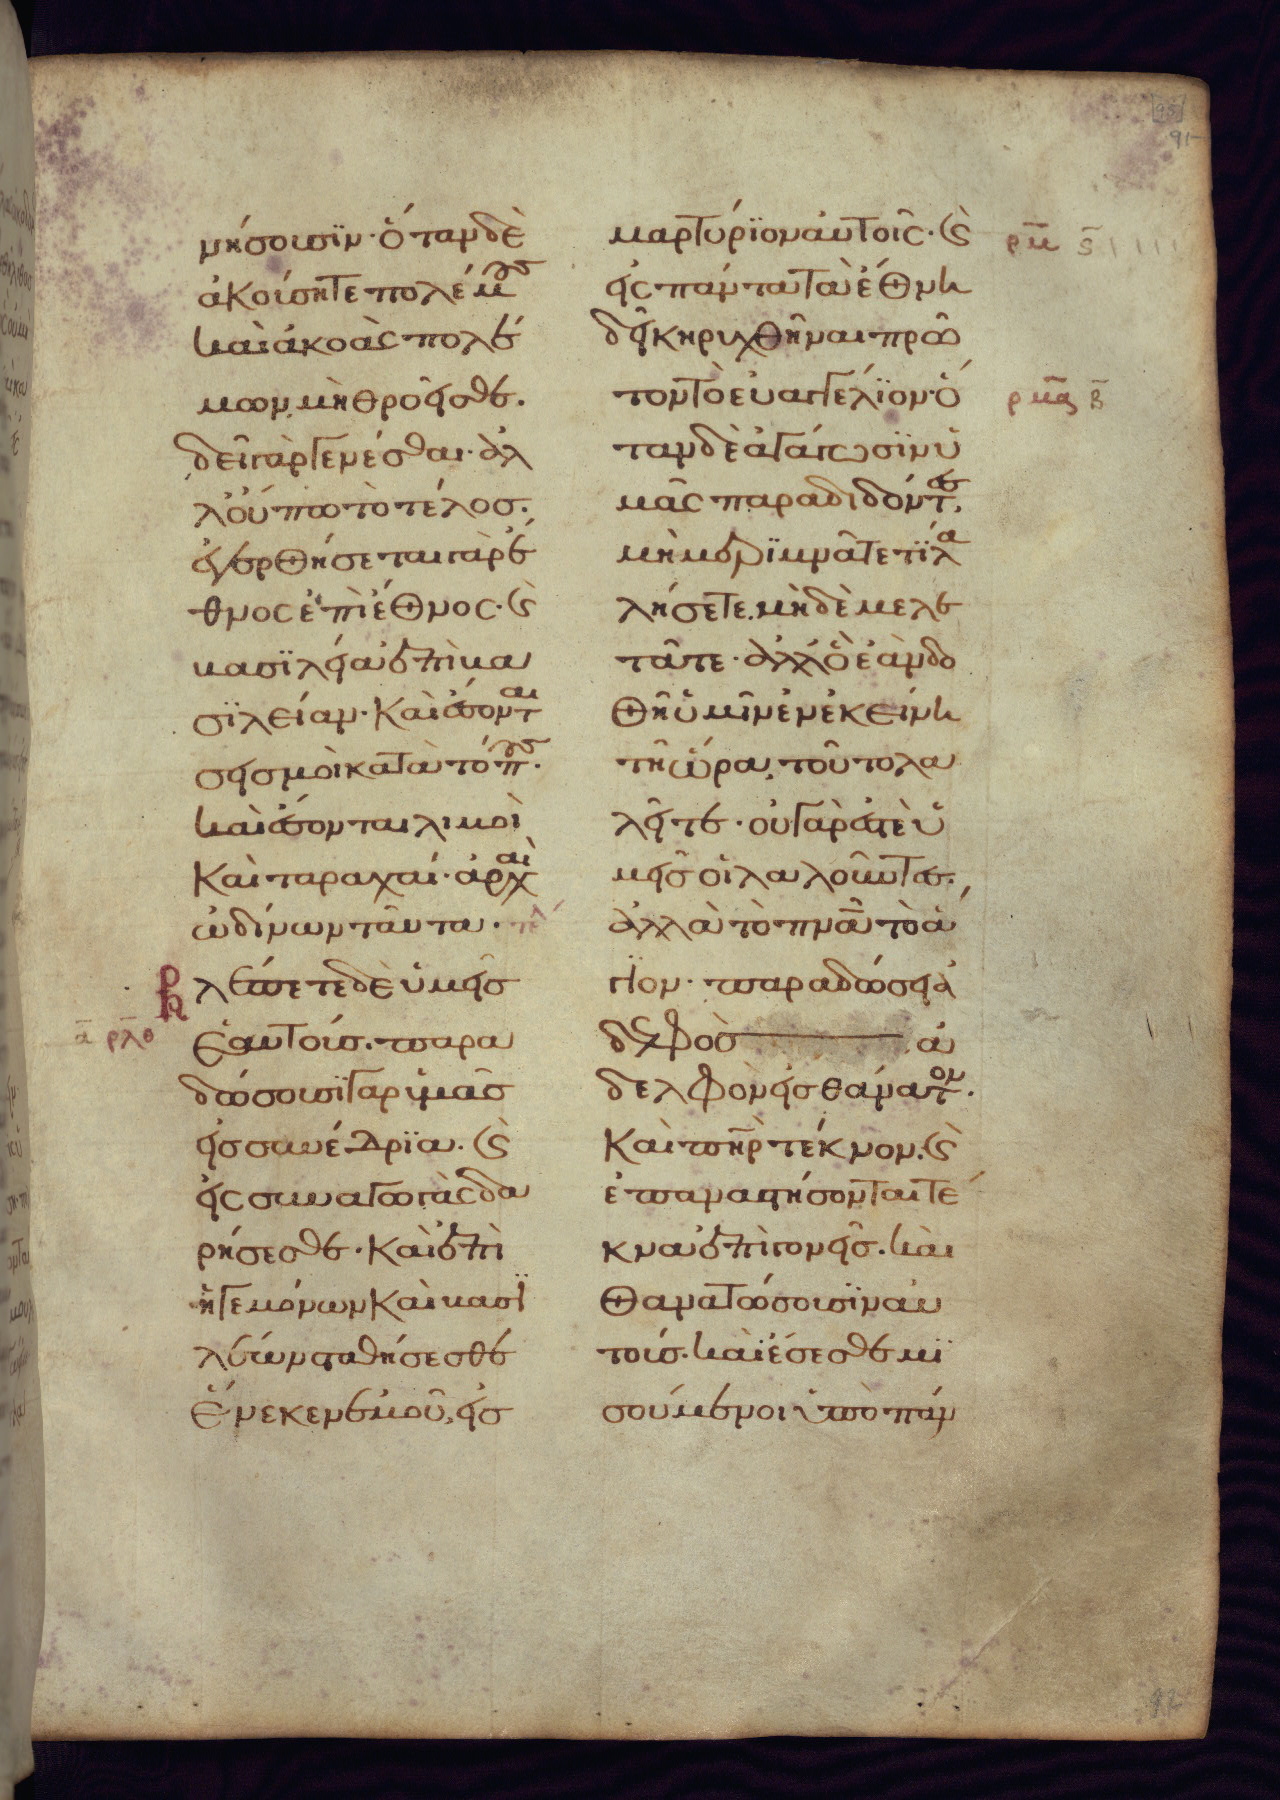 νήσουσϊν· ὅταν δὲ
ἀκούσητε πολέμους
καὶ ἀκοὰς πολέ
μων, μὴ θροεῖσθε.
δεῖ γὰρ γενέσθαι· ἀλ
λ' οὔπω τὸ τέλοσ.
ἐγερθήσεται γὰρ ἔ
θνος ἐπὶ ἔθνος· ϗ̀
βασϊλεία ἐπὶ βα
σϊλείαν· καὶ ἔσονται
σεισμοὶ κατὰ τόπους·
καὶ ἔσονται λιμοὶ
καὶ ταραχαί· ἀρχαὶ
ὠδίνων ταῦτα· τελ
Βλέπετε δὲ ὑμεῖσ
α ρλθ ἑαυτούσ. παρα
δώσουσϊ γαρ ὑμᾶσ
εἰσ συνέδρϊα· ϗ̀
εἰς συναγωγὰς δα
ρήσεσθε· καὶ ἐπὶ
ἡγεμόνων καὶ βασϊ
λέων σταθήσεσθέ
ἕνεκεν ἐμοῦ, εἰσ
μαρτύρϊον αὐτοῖς· ϗ̀ ρμ ς
εἰς πάντα τὰ ἔθνη
δεῖ κηρυχθῆναι πρῶ
τον τὸ εὐαγγέλϊον· ὅ ρμα β
ταν δὲ ἀγάγωσϊν ὑ
μᾶς παραδιδόντες,
μὴ μεριμνᾶτε τί λα
λήσετε, μὴδὲ μελε
τᾶτε· ἀλλ' ὃ ἐὰν δο
θῆ ὑμῖν ἐν ἐκείνη
τῆ ὥρα, τοῦτο λα
λεῖτε· οὐ γάρ ἐστὲ ὑ
μεῖσ οἱ λαλοῦντεσ,
ἀλλὰ τὸ πνα τὸ ἅ
γϊον· παραδώσει ἀ
δελφὸσ ἀ
δελφὸν εἰσ θάνατον.
καὶ πηρ τέκνον. ϗ̀
ἐπαναστήσονται τέ
κνα ἐπὶ γονεῖσ. καὶ
θανατώσουσϊν αὐ
τούσ. καὶ ἔσεσθε μϊ
σούμενοι ὑπὸ πάν
91
92